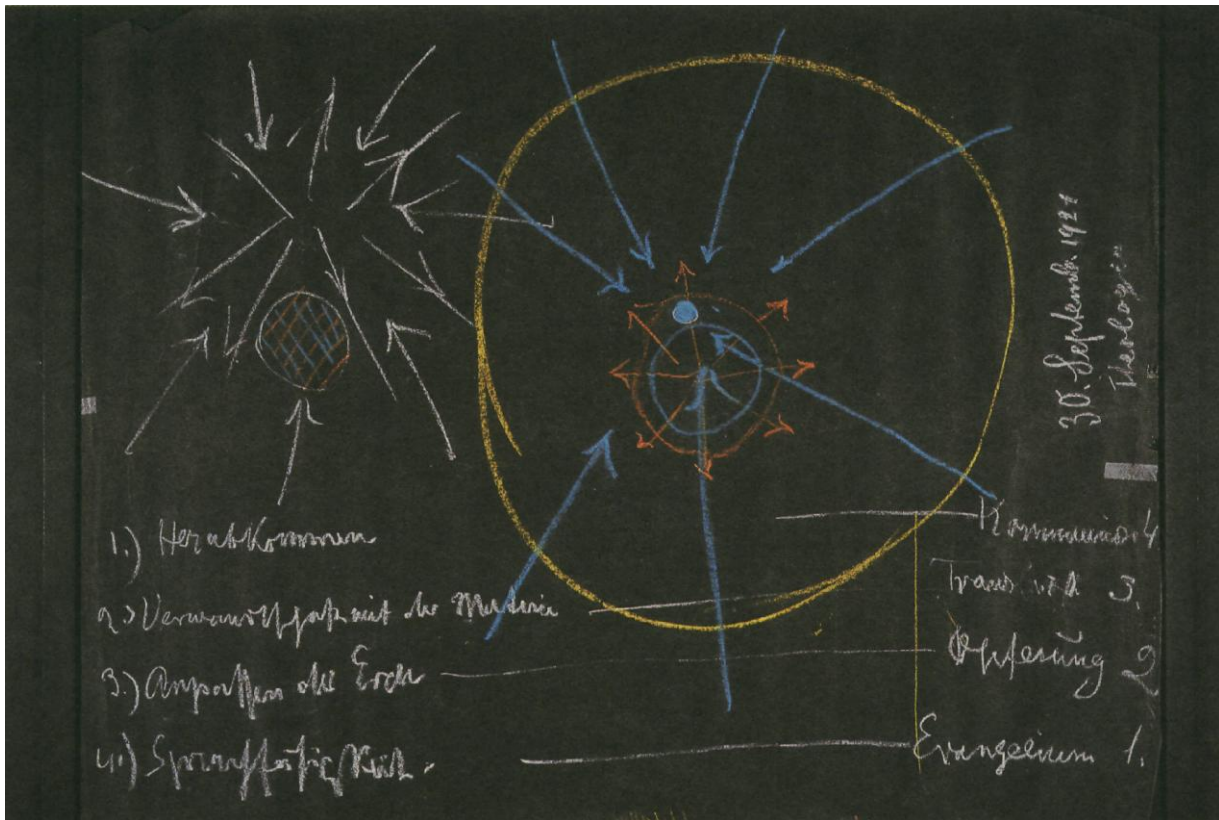 30. Septemb. 1921
Theologie
1.) Herabkommen
2.) Verwandtschaft mit der Materie
3.) Anpassen der Erde
4.) Sprachfähigkeit.
Kommunion 4
3.
Opferung 2
Evangelium 1.